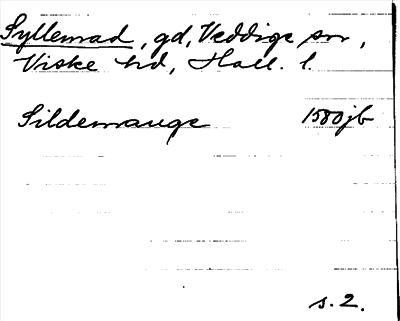 Syllemad, gd, Veddige sn,
Viske hd, Hall. l.
Sildemauge 1580 jb
s. 2.